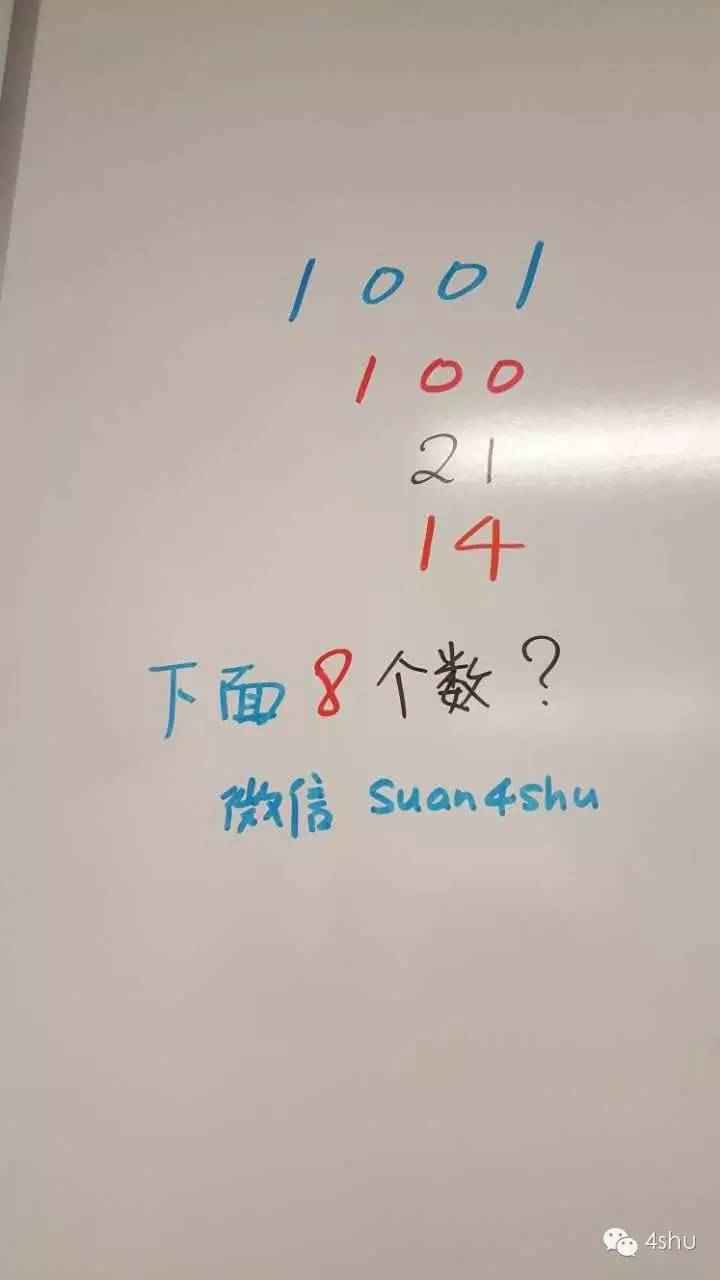 1001
100
21
14
下面8个数?
微信 suan4shu
4shu